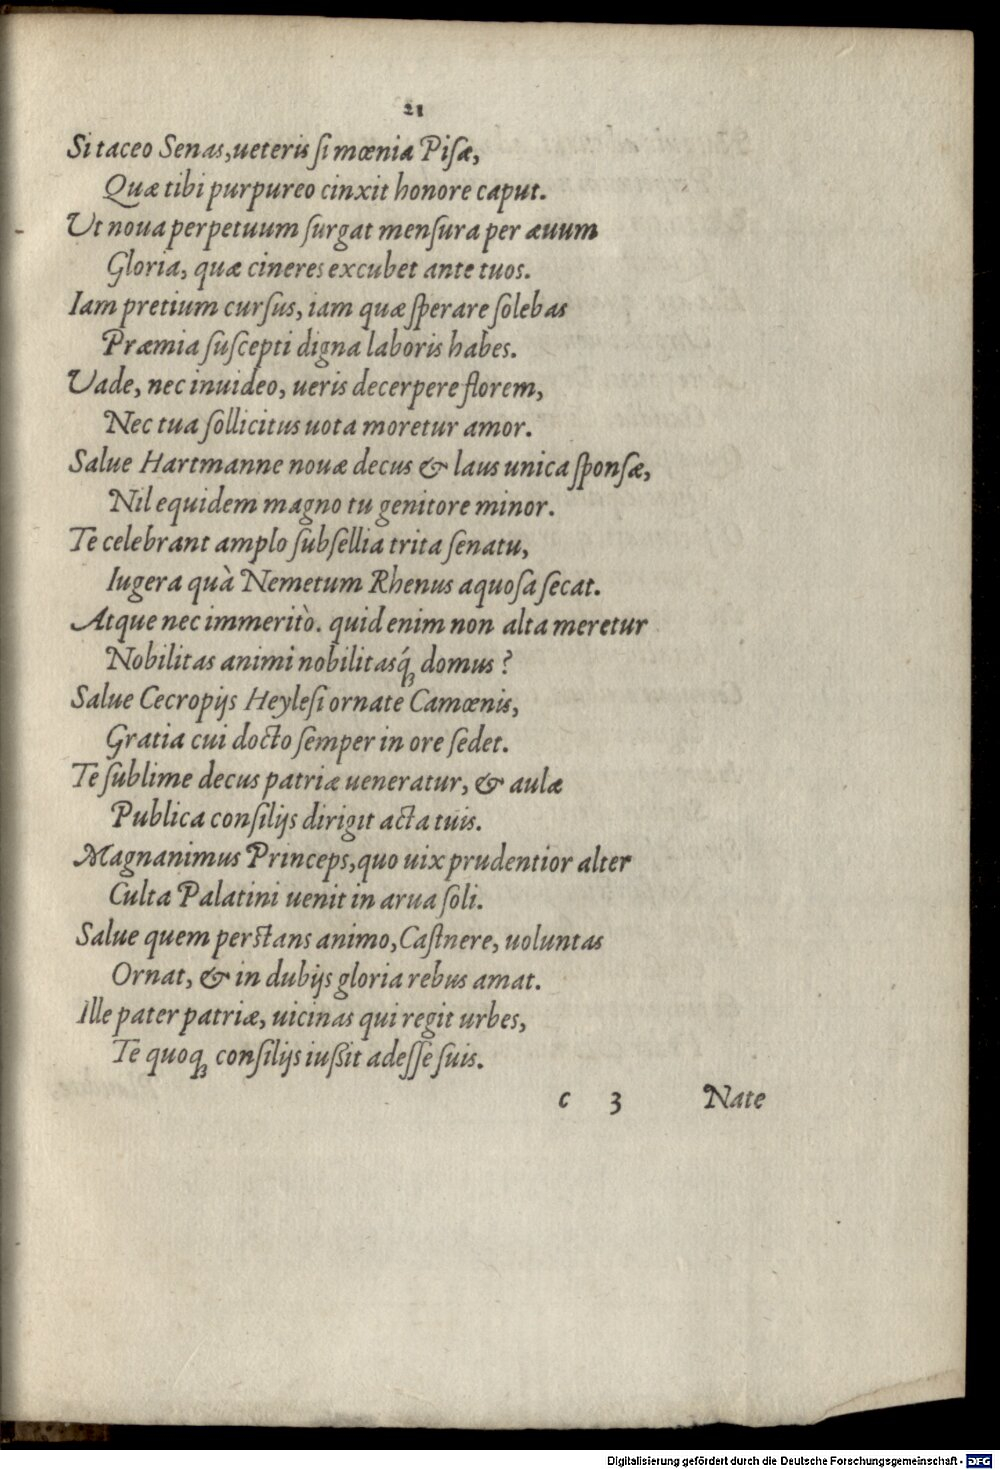 21
Si taceo Senas, ueteris si mœnia Pisæ,
Quæ tibi purpureo cinxit honore caput.
Ut noua perpetuum surgat mensura per æuum
Gloria, quæ cineres excubet ante tuos.
Iam pretium cursus, iam quæ sperare solebas
Præmia suscepti digna laboris habes.
Uade, nec inuideo, ueris decerpere florem,
Nec tua sollicitus uota moretur amor.
Salue Hartmanne nouæ decus & laus unica sponsæ,
Nil equidem magno tu genitore minor.
Te celebrant amplo subsellia trita senatu,
Iugera quà Nemetum Rhenus aquosa secat.
Atque nec immeritò. quid enim non alta meretur
Nobilitas animi nobilitasq́; domus?
Salue Cecropijs Heylesi ornate Camœnis,
Gratia cui docto semper in ore sedet.
Te sublime decus patriæ ueneratur, & aulæ
Publica consilijs dirigit acta tuis.
Magnanimus Princeps, quo uix prudentior alter
Culta Palatini uenit in arua soli.
Salue quem perstans animo, Castnere, uoluntas
Ornat, & in dubijs gloria rebus amat.
Ille pater patriæ, uicinas qui regit urbes,
Te quoq; consilijs iußit adesse suis.
c 3 Nate
Digitalisierung gefördert durch die Deutsche Forschungsgemeinschaft - DFG